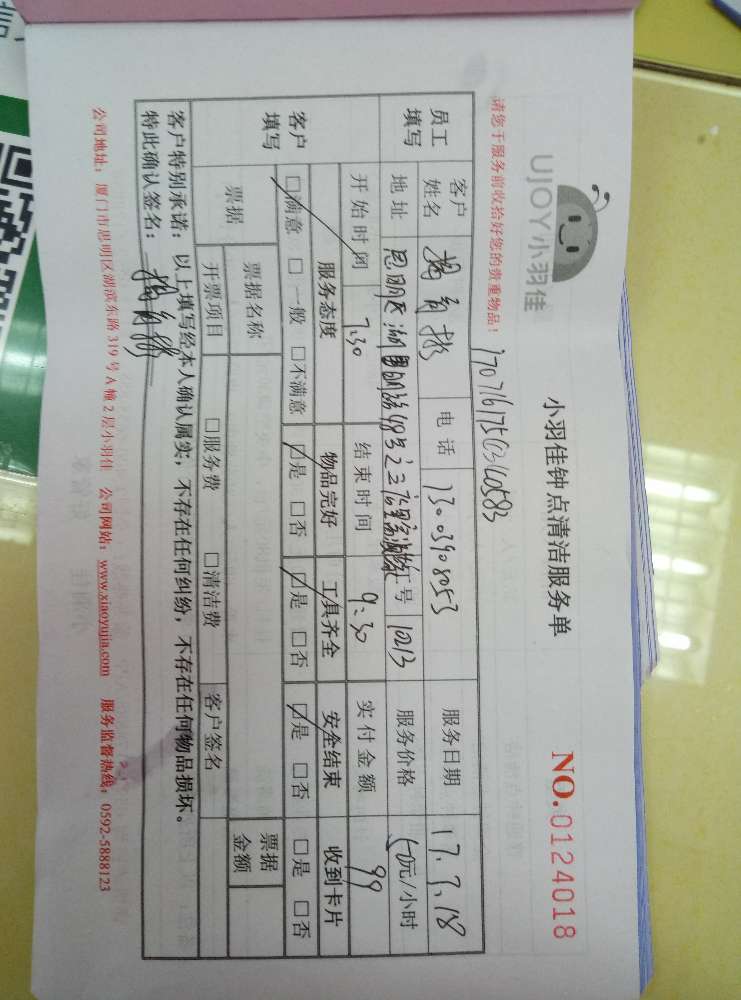 UJOY小羽佳
小羽佳钟点清洁服务单
NO.0124018
请您于服务前收拾好您的贵重物品！
员工填写
客户姓名
电话 13003908053
服务日期 17.7.18
地址 思明区湖
工号 1013
服务价格 元/小时
开始时间 7:30
结束时间 9:30
实付金额 99
客户填写
服务态度 物品完好 工具齐全 安全结束 收到卡片
□满意 □一般 □不满意 □是 □否 □是 □否 □是 □否 □是 □否
票据
票据名称
票据金额
开票项目 □服务费 □清洁费 客户签名
客户特别承诺：以上填写经本人确认属实，不存在任何纠纷，不存在任何物品损坏。
特此确认签名：
公司地址：厦门市思明区湖滨东路319号A幢2层小羽佳 公司网站：www.xiaoyujia.com 服务监督热线：0592-5888123